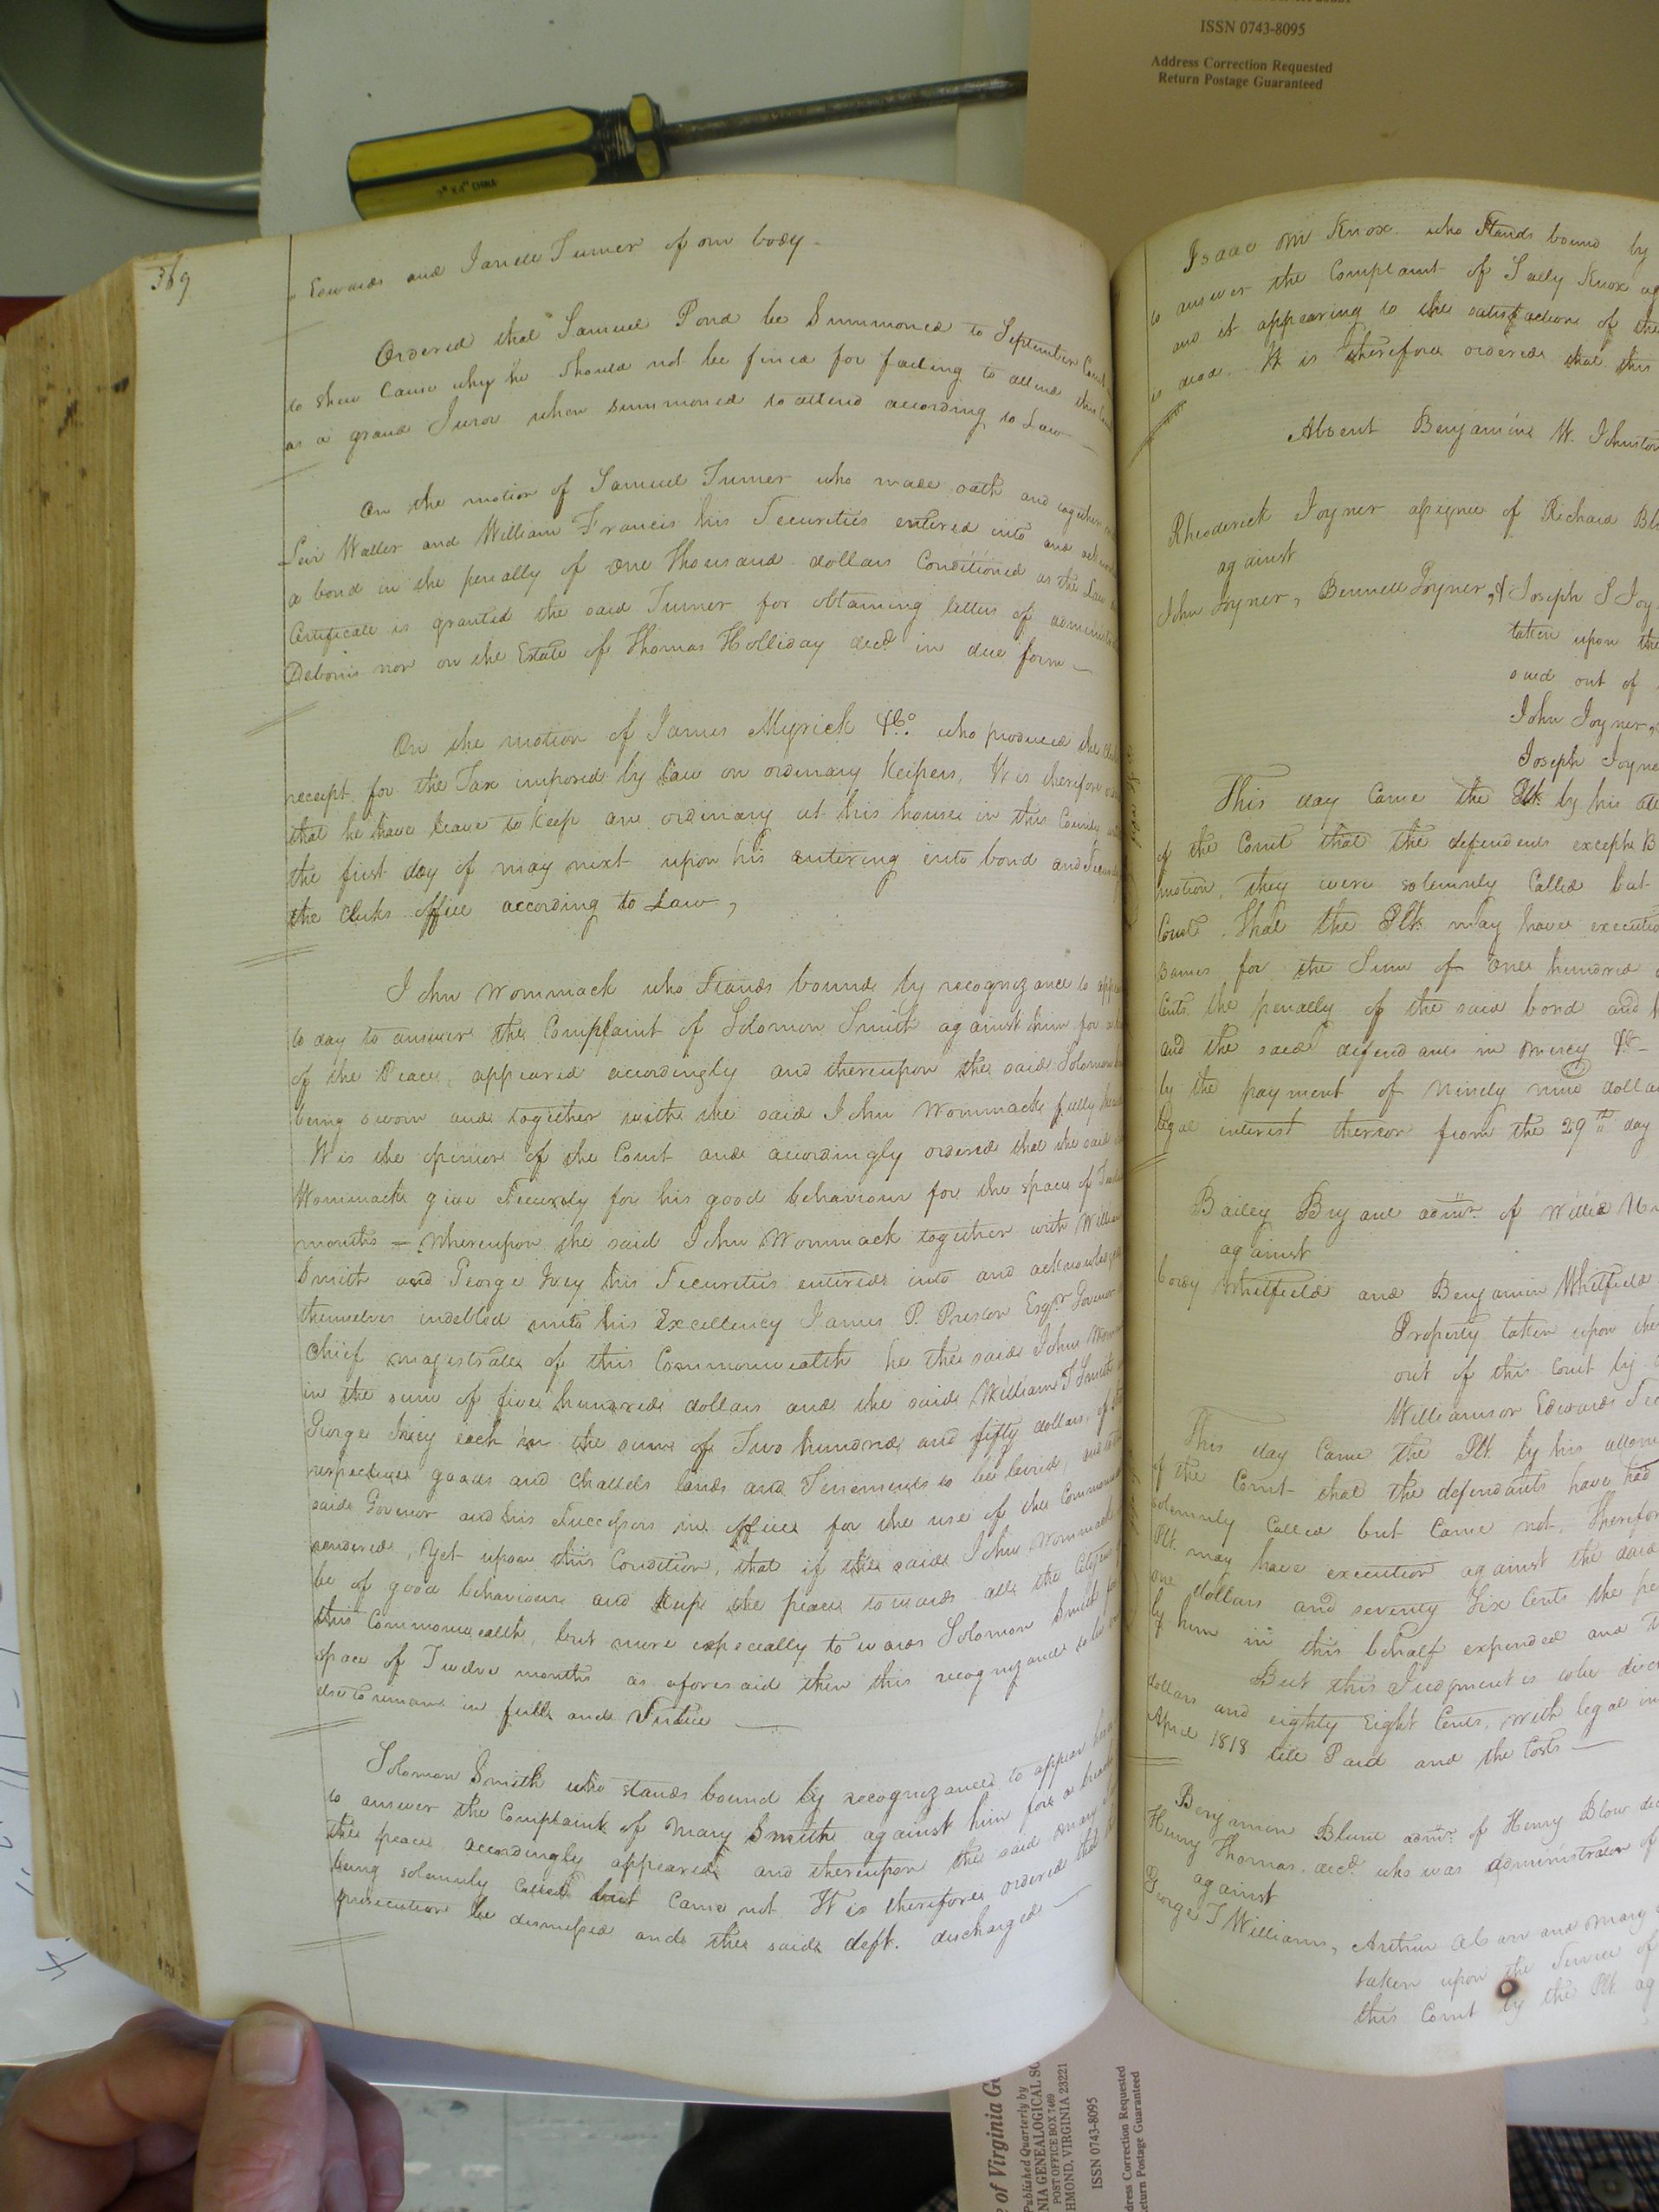 ISSN 0743-8095
Address Correction Requested
Return Postage Guaranteed
CHINA
369
Edwards and Turner of om body -
Ordered that Samuel Pond be Summoned to September Court
to shew Cause why he should not be fined for failing to attend this
as a grand Juror when summoned to attend according to Law
On the motion of Samuel Turner who made oath and together
Levi Waller and William Francis his Securities entered into and
a bond in the penalty of One Thousand dollars Conditioned as the Law
Certificate is granted the said Turner for obtaining letters of
Debonis non on the Estate of Thomas Holliday decd in due form
On the motion of James Myrick &Co. who produced the
receipt for the Tax imposed by Law on ordinary Keepers, It is therefore
that he have leave to Keep an ordinary at his house in this County
the first day of may next upon his entering into bond and
the clerks office according to Law,
John Wommack who Stands bound by recognizance to
to day to answer the Complaint of Solomon Smith against him for
of the Peace, appeared accordingly and thereupon the said Solomon
being sworn and together with the said John Wommack fully
It is the opinion of the Court and accordingly ordered that the said
Wommack give Security for his good behaviour for the space of
months - Whereupon the said John Wommack together with William
Smith and George Ivey his Securities entered into and
themselves indebted unto his Excellency James P. Preston Esqr. Govenor
Chief magistrate of this Commonwealth he the said John
in the sum of five hundred dollars and the said William T Smith
George Ivey each in the sum of Two hundred and fifty dollars, of
respective goods and chattels lands and Tenements to be levied, and
said Govenor and his Successors in office for the use of the
rendered, Yet upon this Condition, that if the said John Wommack
be of good behaviour and keep the peace towards all the Citizens
this Commonwealth, but more especially towards Solomon Smith
space of Twelve months as aforesaid then this recognizance to be
else to remain in full and Virtue
Solomon Smith who stands bound by recognizance to appear here
to answer the Complaint of Mary Smith against him for a breach
the peace accordingly appeared and thereupon the said Mary
being solemnly called but came not. It is therefore ordered that
prosecution be dismissed and the said deft. discharged
Isaac M Knox who Stands bound by
to answer the Complaint of Sally Knox
and it appearing to the satisfaction of the
is dead. It is therefore ordered that this
Absent Benjamin W. Johnston
Rhoderick Joyner assignee of Richard
against
John Joyner, Bennett Joyner, & Joseph S
taken upon the
sued out of
John Joyner
Joseph Joyner
This day Came the Plt. by his
of the Court that the defendents except B
motion, they were solemnly Called but
Court. That the Plt. may have execution
Barnes for the Sum of One hundred
Cents the penalty of the said bond and
and the said defendants in mercy &c
by the payment of Ninety nine
legal interest thereon from the 29th day
Bailey Bryant admr. of Willis
against
Corey Whitfield and Benjamin Whitfield
Property taken upon the
out of this Court by
Williamson Edwards
This day Came the Plt. by his
of the Court that the defendants have had
solemnly Called but Came not, Therefore
Plt. may have execution against the said
one dollars and seventy Six Cents the
by him in this behalf expended and
But this Judgment is to be
dollars and eighty Eight Cents, with legal
April 1818 till Paid and the Costs
Benjamin Blunt admr. of Henry Blow
Henry Thomas decd. who was administrator of
against
George T Williams, Arthur and Mary
taken upon the Service of
this Court by the Plt.
of Virginia
Published Quarterly by
NIA GENEALOGICAL
POST OFFICE BOX 7469
HMOND, VIRGINIA 23221
ISSN 0743-8095
dress Correction Requested
eturn Postage Guaranteed